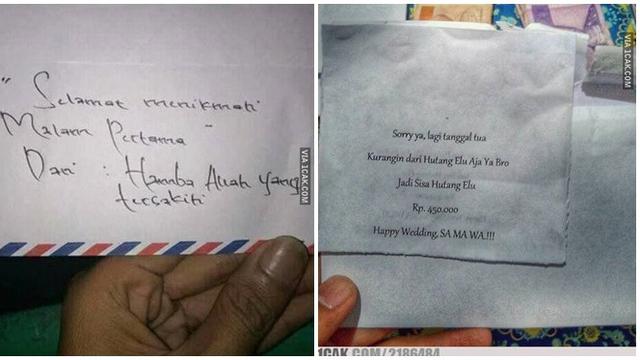 "Selamat menikmati
Malam Pertama"
Dari : Hamba Allah yang
tersakiti
VIA 1CAK.COM
Sorry ya, lagi tanggal tua
Kurangin dari Hutang Elu Aja Ya Bro
Jadi Sisa Hutang Elu
Rp. 450.000
Happy Wedding, SA MA WA.!!!
VIA 1CAK.COM
1CAK.COM/2186484